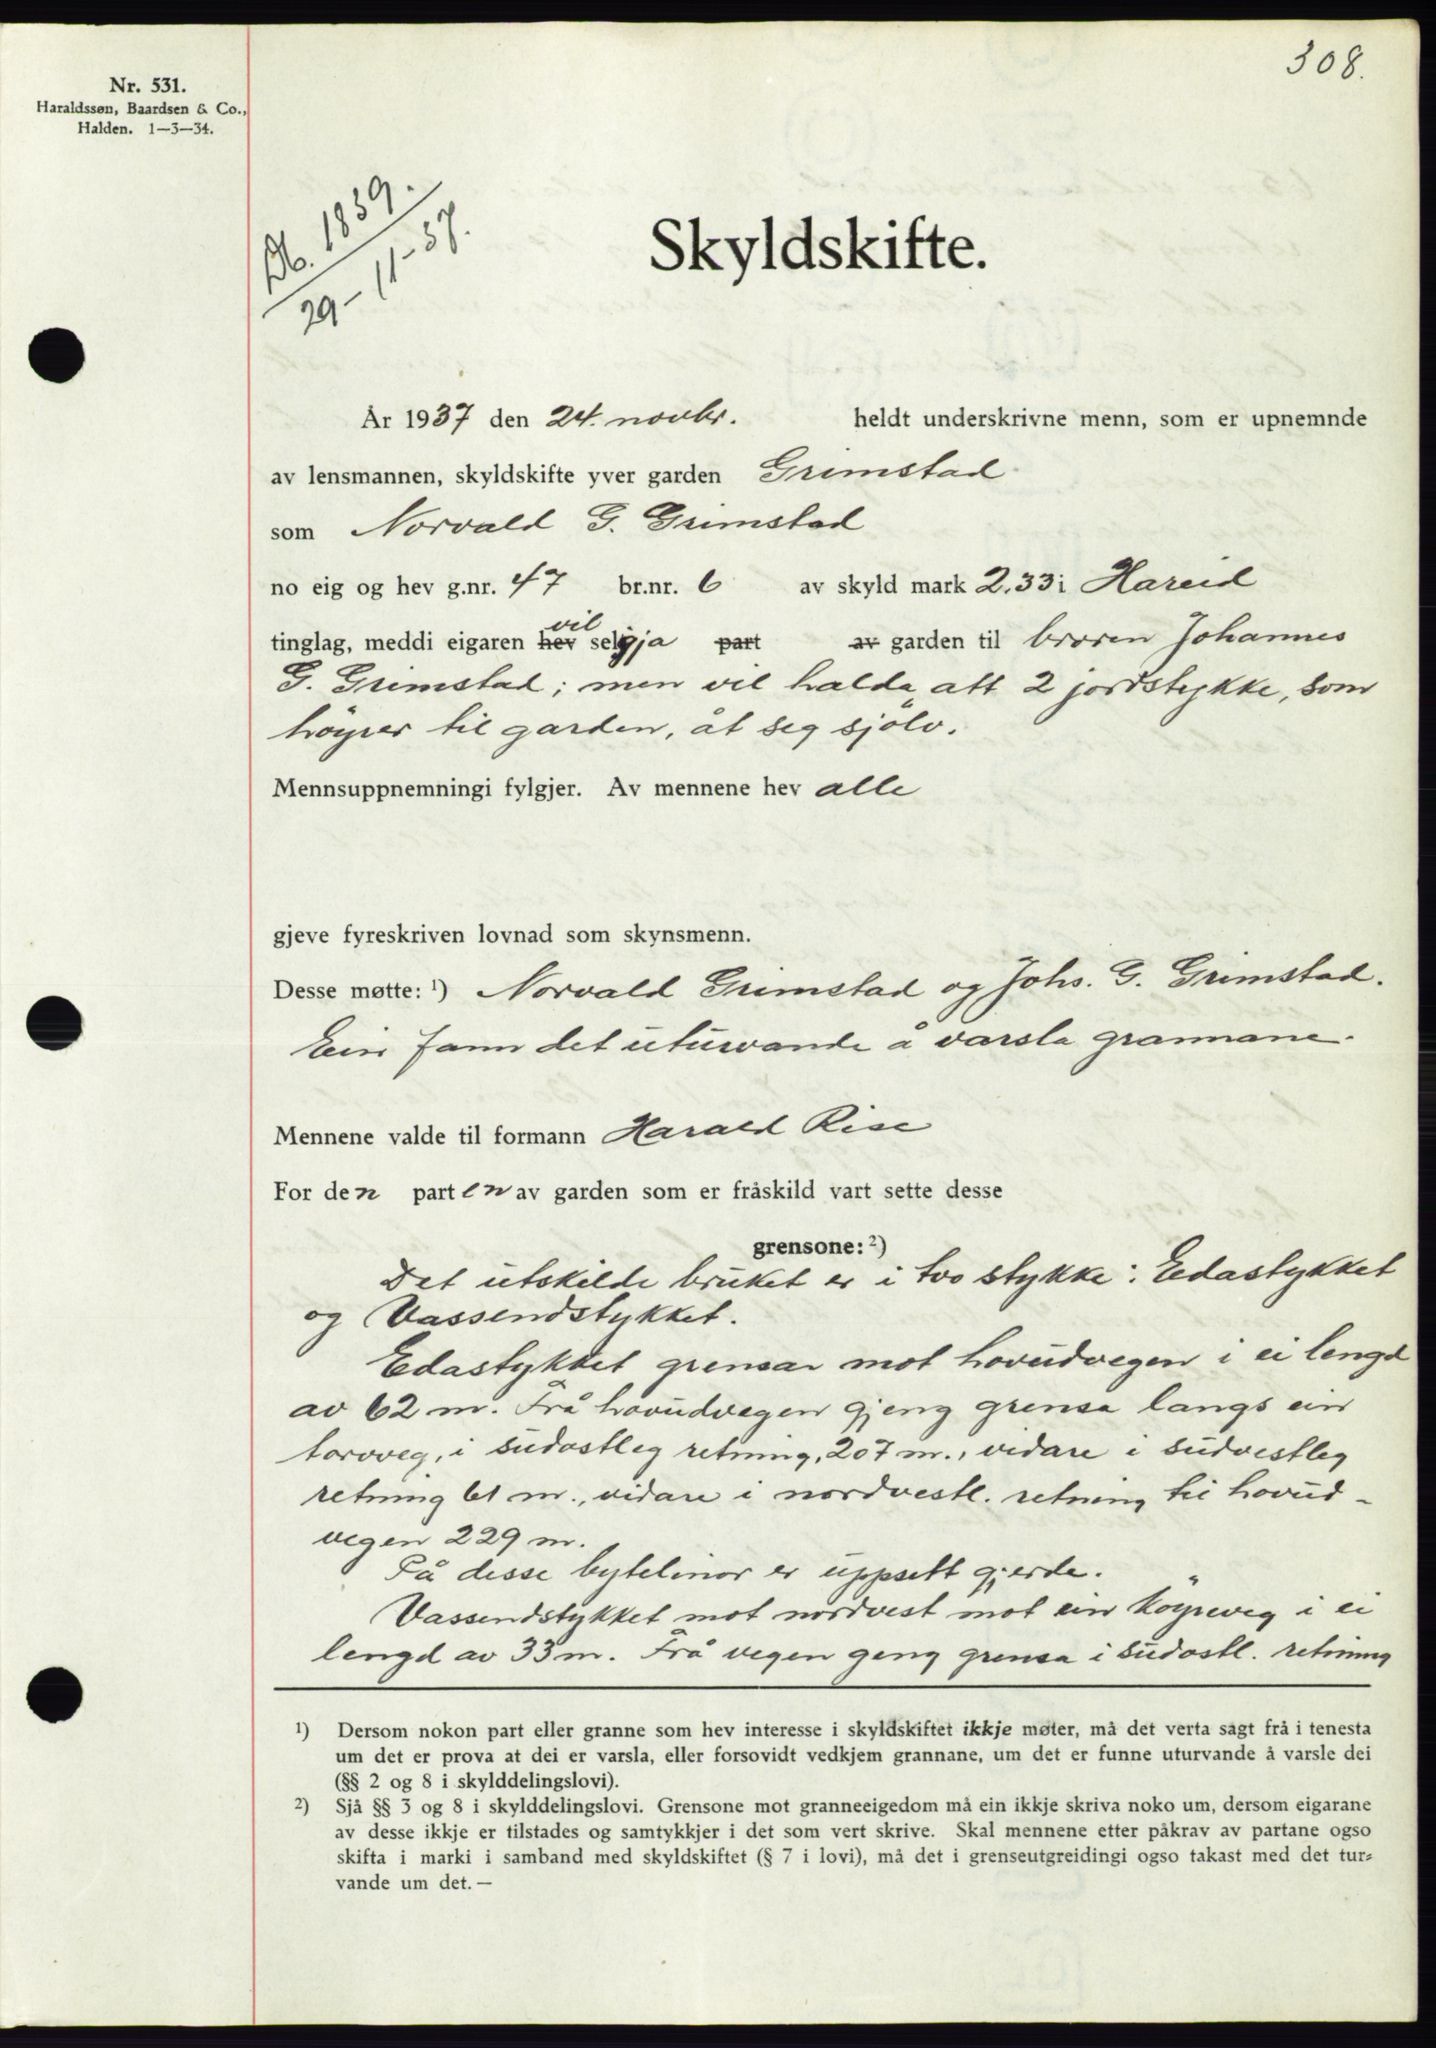 308.
Nr. 531.
Haraldssøn, Baardsen & Co.,
Halden. 1—3—34.
Db. 1839.
29-11-37.
Skyldskifte.
År 1937 den 24. novbr. heldt underskrivne menn, som er upnemnde
av lensmannen, skyldskifte yver garden Grimstad
som Norvald G. Grimstad
no eig og hev g.nr. 47 br.nr. 6 av skyld mark 2.33 i Hareid
vil
tinglag, meddi eigaren hev selgja part av garden til broren Johannes
G. Grimstad; men vil halda att 2 jordstykke, som
höyrer til garden, åt seg sjölv.
Mennsuppnemningi fylgjer. Av mennene hev alle
gjeve fyreskriven lovnad som skynsmenn.
Desse møtte: ¹) Norvald Grimstad og Johs. G. Grimstad.
Ein fann det uturvande å varsla grannane.
Mennene valde til formann Harald Rise
For den parten av garden som er fråskild vart sette desse
grensone: ²)
Det utskilde bruket er i tvo stykke: Eedastykket
og Vassendstykket.
Edastykket grensar mot hovudvegen i ei lengd
av 62 m. Frå hovudvegen gjeng grensa langs ein
torvveg, i sudostleg retning, 207 m., vidare i sudvestleg
retning 61 m., vidare i nordvestl. retning til hovud-
vegen 229 m.
På desse bytelinor er uppsett gjerde.
Vassendstykket mot nordvest mot ein köyreveg i ei
lengd av 33 m. Frå vegen geng grensa i sudostl. retning
¹) Dersom nokon part eller granne som hev interesse i skyldskiftet ikkje møter, må det verta sagt frå i tenesta
um det er prova at dei er varsla, eller forsovidt vedkjem grannane, um det er funne uturvande å varsle dei
(§§ 2 og 8 i skylddelingslovi).
²) Sjå §§ 3 og 8 i skylddelingslovi. Grensone mot granneeigedom må ein ikkje skriva noko um, dersom eigarane
av desse ikkje er tilstades og samtykkjer i det som vert skrive. Skal mennene etter påkrav av partane ogso
skifta i marki i samband med skyldskiftet (§ 7 i lovi), må det i grenseutgreidingi ogso takast med det tur-
vande um det. —